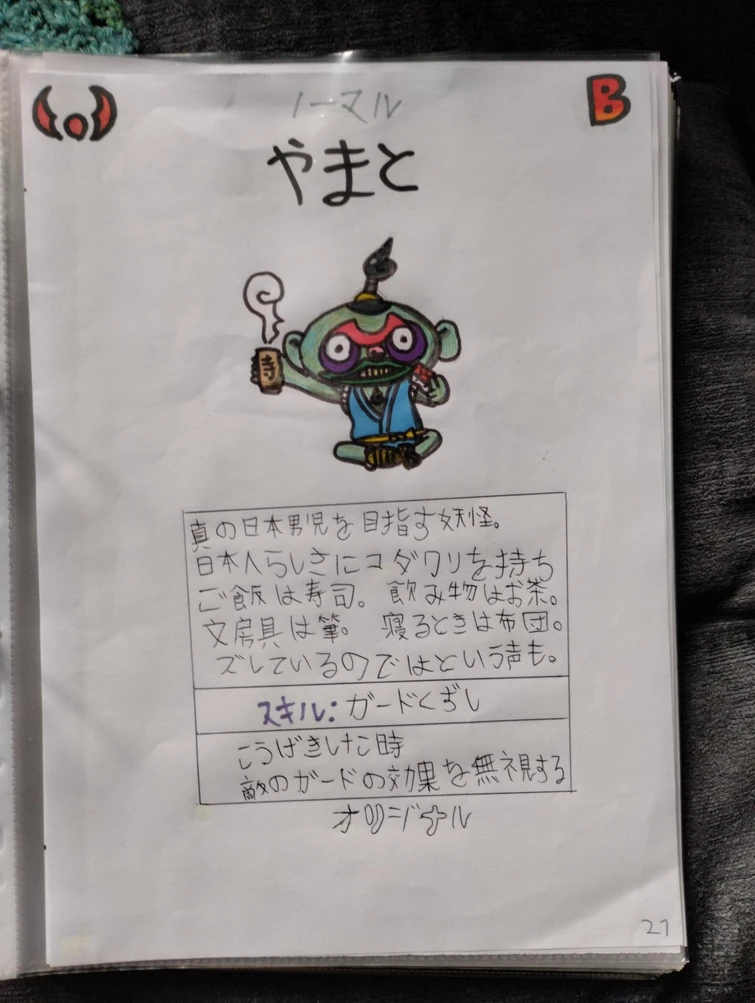 ノーマル
B
やまと
寿
真の日本男児を目指す妖怪。
日本人らしさにコダワリを持ち
ご飯は寿司。 飲み物はお茶。
文房具は筆。 寝るときは布団。
ズレているのではという声も。
スキル: ガードくずし
こうげきした時
敵のガードの効果を無視する
オリジナル
27